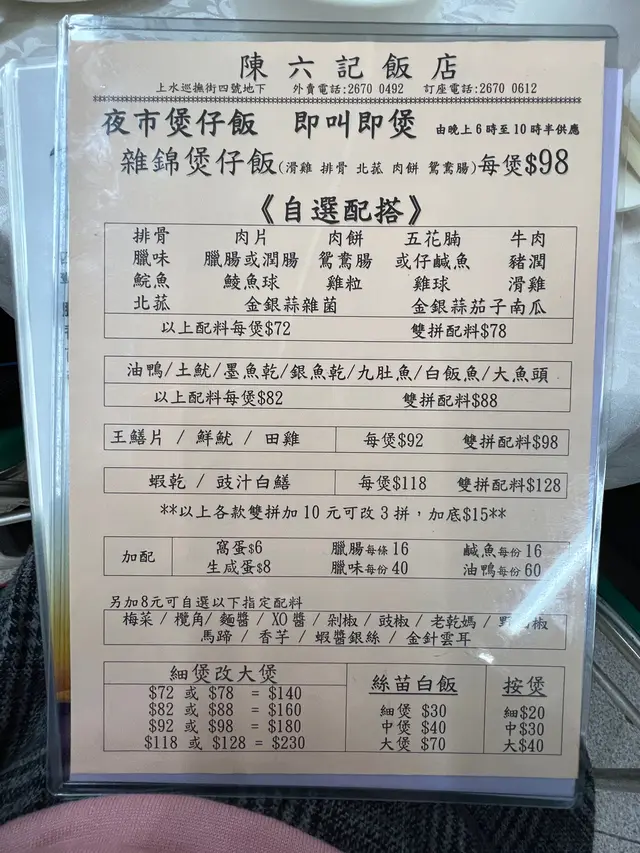 陳六記飯店
上水巡撫街四號地下 外賣電話:2670 0492 訂座電話:2670 0612
夜市煲仔飯 即叫即煲 由晚上6時至10時半供應
雜錦煲仔飯(滑雞 排骨 北菰 肉餅 鴛鴦腸)每煲$98
《自選配搭》
排骨 肉片 肉餅 五花腩 牛肉
臘味 臘腸或潤腸 鴛鴦腸 或仔鹹魚 豬潤
鯇魚 鯪魚球 雞粒 雞球 滑雞
北菰 金銀蒜雜菌 金銀蒜茄子南瓜
以上配料每煲$72 雙拼配料$78
油鴨/土魷/墨魚乾/銀魚乾/九肚魚/白飯魚/大魚頭
以上配料每煲$82 雙拼配料$88
王鱔片 / 鮮魷 / 田雞 每煲$92 雙拼配料$98
蝦乾 / 豉汁白鱔 每煲$118 雙拼配料$128
**以上各款雙拼加10元可改3拼，加底$15**
加配 窩蛋$6 臘腸每條16 鹹魚每份16
生咸蛋$8 臘味每份40 油鴨每份60
另加8元可自選以下指定配料
梅菜 / 欖角/ 麵醬 / XO醬 / 剁椒 / 豉椒 / 老乾媽 / 椒
馬蹄 / 香芋 / 蝦醬銀絲 / 金針雲耳
細煲改大煲 絲苗白飯 按煲
$72 或 $78 = $140
$82 或 $88 = $160 細煲 $30 細$20
$92 或 $98 = $180 中煲 $40 中$30
$118 或 $128 = $230 大煲 $70 大$40